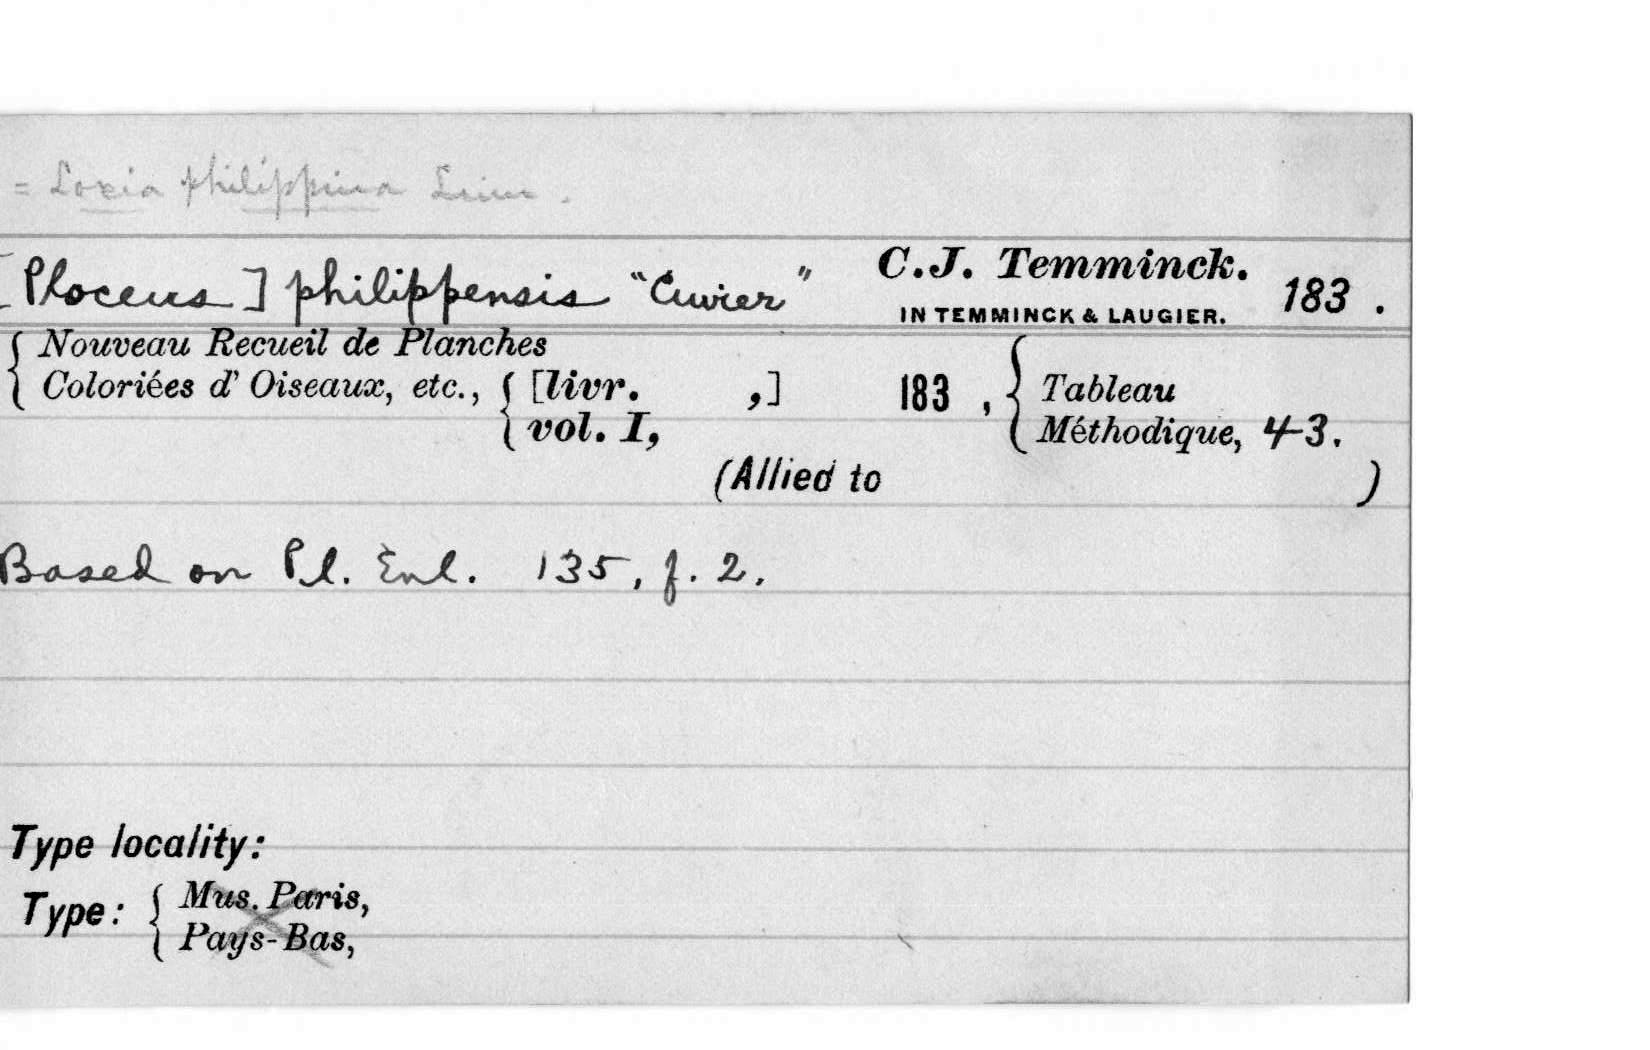 = Loxia philippina Linn.
[Ploceus] philippensis "Cuvier" C.J. Temminck. 183.
IN TEMMINCK & LAUGIER.
{ Nouveau Recueil de Planches
Coloriées d' Oiseaux, etc., { [livr. ,] 183, { Tableau
vol. I, Méthodique, 43.
(Allied to )
Based on Pl. Enl. 135, f. 2.
Type locality:
Type: { Mus. Paris,
Pays-Bas,